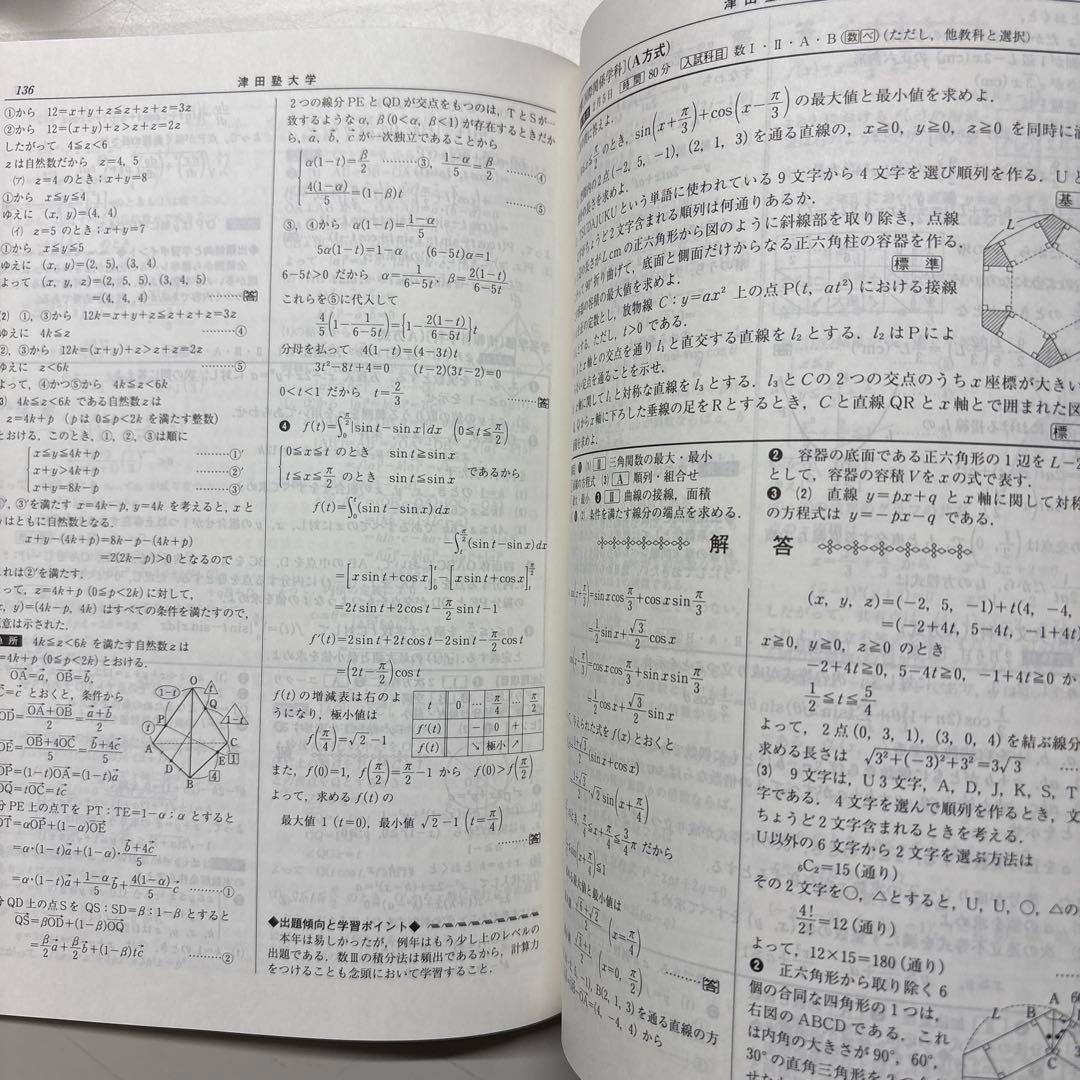 136 津田塾大学
①から 12=x+y+z≦z+z+z=3z
②から 12=(x+y)+z>z+z=2z
したがって 4≦z<6
zは自然数だから z=4, 5
(ア) z=4 のとき;x+y=8
①から x≦y≦4
ゆえに (x, y)=(4, 4)
(イ) z=5 のとき;x+y=7
①から x≦y≦5
ゆえに (x, y)=(2, 5), (3, 4)
よって (x, y, z)=(2, 5, 5), (3, 4, 5)
=(4, 4, 4) 答
(2) ①, ③から 12k=x+y+z≦z+z+z=3z
ゆえに 4k≦z ………④
②, ③から 12k=(x+y)+z>z+z=2z
ゆえに z<6k ………⑤
よって, ④かつ⑤から 4k≦z<6k
(3) 4k≦z<6k である自然数zは
z=4k+p (pは 0≦p<2k を満たす整数)
とおける. このとき, ①, ②, ③は順に
x≦y≦4k+p ………①′
x+y>4k+p ………②′
x+y=8k-p ………③′
①′, ③′を満たす x=4k-p, y=4k を考えると, xと
yはともに自然数となる.
x+y-(4k+p)=8k-p-(4k+p)
=2(2k-p)>0 となるので
これは②′を満たす.
よって, z=4k+p (0≦p<2k) に対して,
(x, y)=(4k-p, 4k) はすべての条件を満たすので,
題意は示された.
4k≦z<6k を満たす自然数zは
z=4k+p (0≦p<2k) とおける.
OA=a, OB=b,
OC=c とおくと, 条件から
OD=(OA+OB)/2=(a+b)/2
OE=(OB+4OC)/5=(b+4c)/5
OP=(1-t)OA=(1-t)a
OQ=tOC=tc
線分PE上の点Tを PT:TE=1-α:α とすると
OT=αOP+(1-α)OE
=α・(1-t)a+(1-α)・(b+4c)/5
=α・(1-t)a+(1-α)/5 b+4(1-α)/5 c ………①
線分QD上の点Sを QS:SD=β:1-β とすると
OS=βOD+(1-β)OQ
=β/2 a+β/2 b+(1-β)tc ………②
O 1-t t Q P 1-t A C D B E 1 4
2つの線分PEとQDが交点をもつのは, TとSが一
致するようなα, β(0<α, β<1)が存在するときだか
ら, a, b, c が一次独立であることから
α(1-t)=β/2 ………③, (1-α)/5=β/2 ………④
4(1-α)/5=(1-β)t ………⑤
③, ④から α(1-t)=(1-α)/5
5α(1-t)=1-α (6-5t)α=1
6-5t>0 だから α=1/(6-5t), β=2(1-t)/(6-5t)
これらを⑤に代入して
4/5(1-1/(6-5t))={1-2(1-t)/(6-5t)}t
分母を払って 4(1-t)=(4-3t)t
3t²-8t+4=0 (t-2)(3t-2)=0
0<t<1 だから t=2/3 ………答
❹ f(t)=∫₀^(π/2)|sin t-sin x|dx (0≦t≦π/2)
0≦x≦t のとき sin t≧sin x
t≦x≦π/2 のとき sin t≦sin x であるから
f(t)=∫₀ᵗ(sin t-sin x)dx
-∫ₜ^(π/2)(sin t-sin x)dx
=[x sin t+cos x]₀ᵗ-[x sin t+cos x]ₜ^(π/2)
=2t sin t+2cos t-π/2 sin t-1
f′(t)=2sin t+2t cos t-2sin t-π/2 cos t
=(2t-π/2)cos t
f(t)の増減表は右のよ
うになり, 極小値は
f(π/4)=√2-1
t 0 … π/4 … π/2
f′(t) - 0 +
f(t) ↘ 極小 ↗
また, f(0)=1, f(π/2)=π/2-1 から f(0)>f(π/2)
よって, 求める f(t) の
最大値 1 (t=0), 最小値 √2-1 (t=π/4)
………答
◆出題傾向と学習ポイント◆
本年は易しかったが, 例年はもう少し上のレベルの
出題である. 数Ⅲの積分法は頻出であるから, 計算力
をつけることも念頭において学習すること.
津田塾大
国際関係学科](A方式)
月5日 [時間]80分 [入試科目]数Ⅰ・Ⅱ・A・B[数ベ](ただし, 他教科と選択)
に答えよ.
のとき, sin(x+π/3)+cos(x-π/3) の最大値と最小値を求めよ.
間内の2点(-2, 5, -1), (2, 1, 3)を通る直線の, x≧0, y≧0, z≧0 を同時に満
の長さを求めよ.
TSUDAJUKUという単語に使われている9文字から4文字を選び順列を作る. Uと
ちょうど2文字含まれる順列は何通りあるか. 基
の長さがLcmの正六角形から図のように斜線部を取り除き, 点線
で90°折り曲げて, 底面と側面だけからなる正六角柱の容器を作る.
の容積の最大値を求めよ. 標準
の定数とし, 放物線C:y=ax² 上の点P(t, at²)における接線
とする. ただし, t>0 である.
軸との交点を通りl₁と直交する直線をl₂とする. l₂はPによ
定点を通ることを示せ.
軸に関してl₁と対称な直線をl₃とする. l₃とCの2つの交点のうちx座標が大きい
からx軸に下ろした垂線の足をRとするとき, Cと直線QRとx軸とで囲まれた図
を求めよ. 標
L
Ⅱ 三角関数の最大・最小
の方程式 (3) A 順列・組合せ
最大・最小 ❸ Ⅱ 曲線の接線, 面積
(2) 条件を満たす線分の端点を求める.
❷ 容器の底面である正六角形の1辺をL-2
として, 容器の容積Vをxの式で表す.
❸ (2) 直線 y=px+q とx軸に関して対称
の方程式は y=-px-q である.
解 答
=sin x cos π/3+cos x sin π/3
=1/2 sin x+√3/2 cos x
=cos x cos π/3+sin x sin π/3
=1/2 cos x+√3/2 sin x
与えられた式をf(x)とおくと
(sin x+cos x)
・√2 sin(x+π/4)
π/4≦x+π/4≦3/4 π だから
sin(x+π/4)≦1
最大値と最小値は
(√6+√2)/2 (x=π/4)
(√3+1)/2 (x=0, π/2) ………答
-1), B(2, 1, 3)を通る直線の方
OB-OA=(4, -4, 4) から
(x, y, z)=(-2, 5, -1)+t(4, -4,
=(-2+4t, 5-4t, -1+4t)
x≧0, y≧0, z≧0 のとき
-2+4t≧0, 5-4t≧0, -1+4t≧0 か
1/2≦t≦5/4
よって, 2点(0, 3, 1), (3, 0, 4)を結ぶ線分
求める長さは √(3²+(-3)²+3²)=3√3
(3) 9文字は, U3文字, A, D, J, K, S, T
字である. 4文字を選んで順列を作るとき, 文
ちょうど2文字含まれるときを考える.
U以外の6文字から2文字を選ぶ方法は
₆C₂=15(通り)
その2文字を○, △とすると, U, U, ○, △の
4!/2!=12(通り)
よって, 12×15=180(通り)
❷ 正六角形から取り除く6
個の合同な四角形の1つは,
右図のABCDである. これ
は内角の大きさが90°, 60°,
30°の直角三角形を2
L A B C